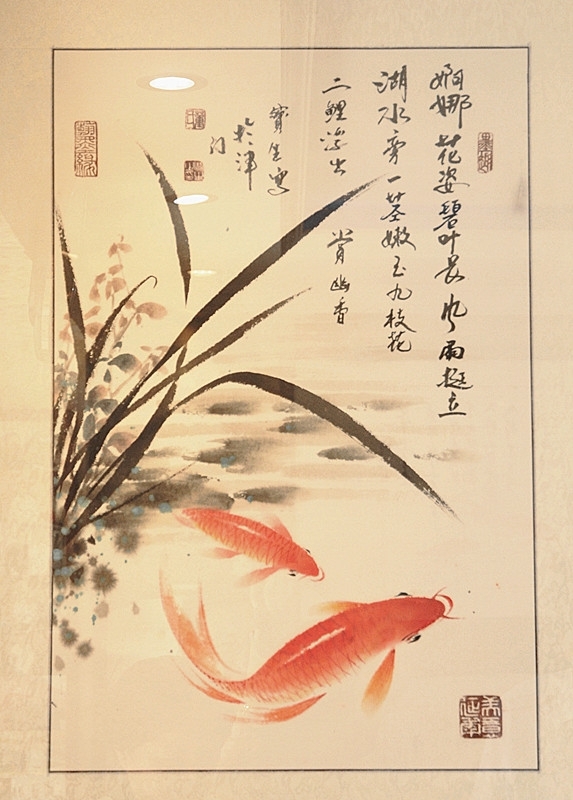 婀娜花姿碧叶长风雨挺立
湖水旁一茎嫩玉九枝花
二鲤浮出 赏幽香
宝生写
於津
门